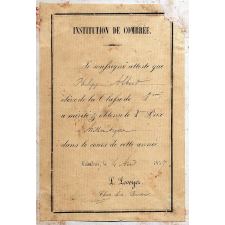 INSTITUTION DE COMBRÉE.
Je soussigné atteste que
Philippe Albert
élève de la Classe de
a mérité & obtenu le 1er Prix
dans le cours de cette année
Combrée, le 4 Août
L. Levoyer